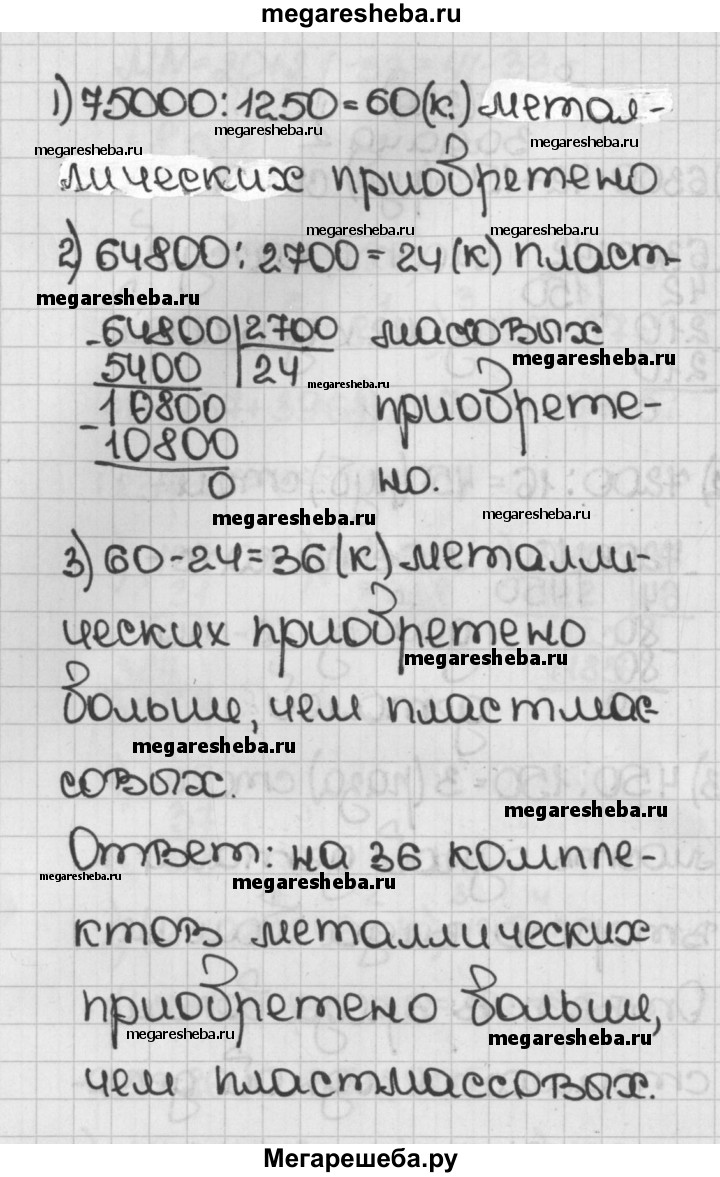 megaresheba.ru
1) 75000:1250=60(к.) метал-
megaresheba.ru
megaresheba.ru
лических приобретено
megaresheba.ru
megaresheba.ru
2) 64800:2700=24(к) пласт-
megaresheba.ru
-64800|2700 массовых
megaresheba.ru
5400 |24
megaresheba.ru
-10800 приобрете-
10800
0 но.
megaresheba.ru
megaresheba.ru
3) 60-24=36(к) металли-
ческих приобретено
megaresheba.ru
больше, чем пластмас-
megaresheba.ru
совых.
megaresheba.ru
Ответ: на 36 компле-
megaresheba.ru
megaresheba.ru
ктов металлических
приобретено больше,
megaresheba.ru
megaresheba.ru
чем пластмассовых.
Мегарешеба.ру